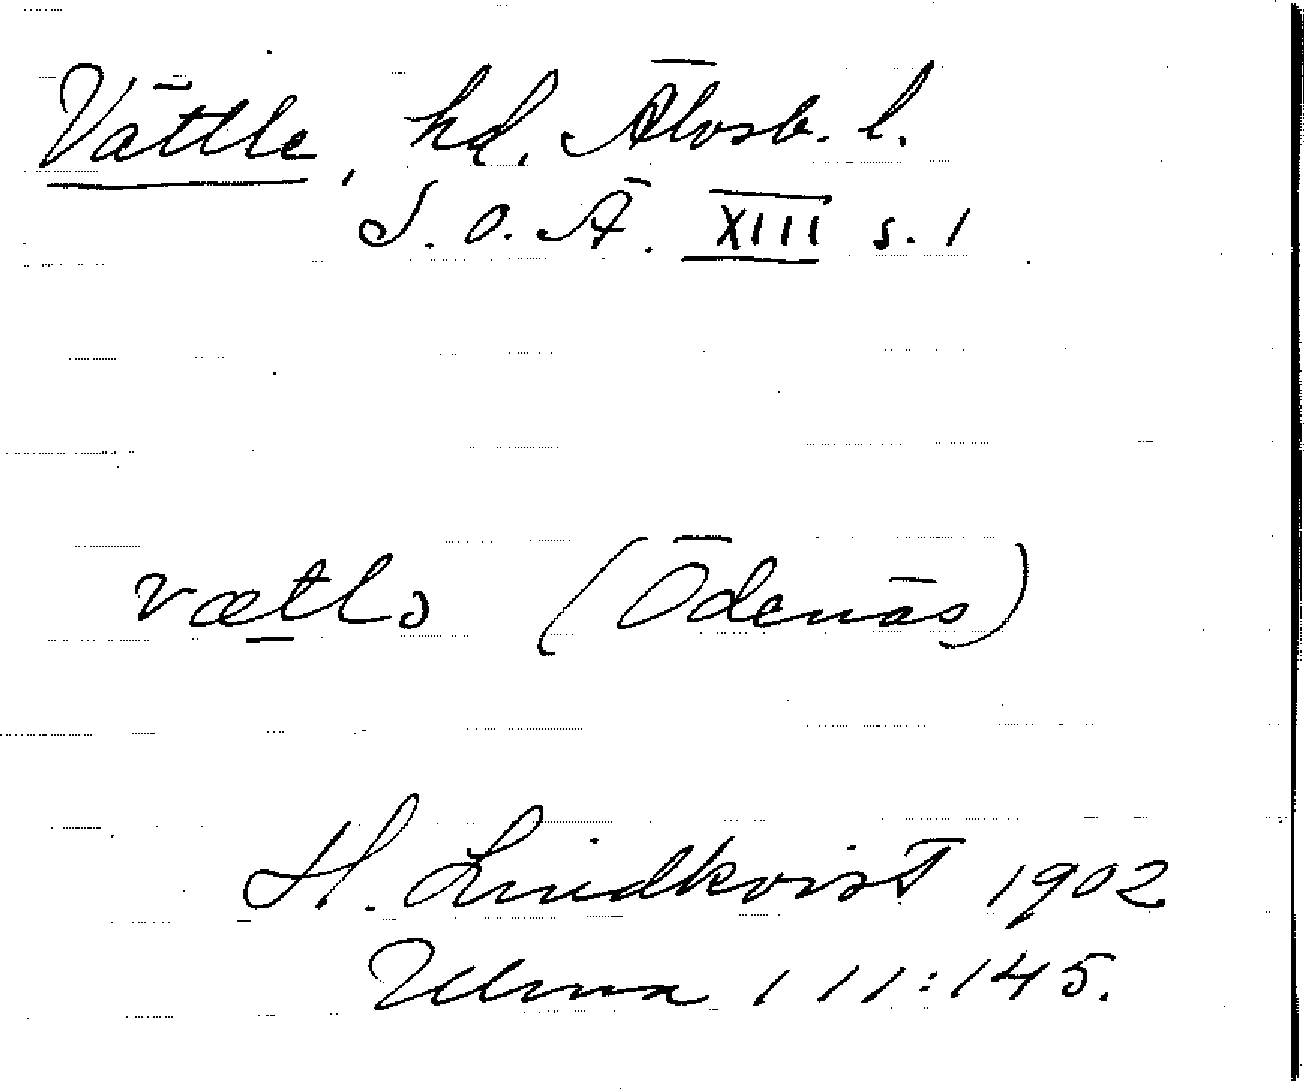 Vättle, hd. Älvsb. l.
S. O. Ä. XIII s. 1
vætlɔ (Ödenäs)
H. Lindkvist 1902
Ulma 111:145.